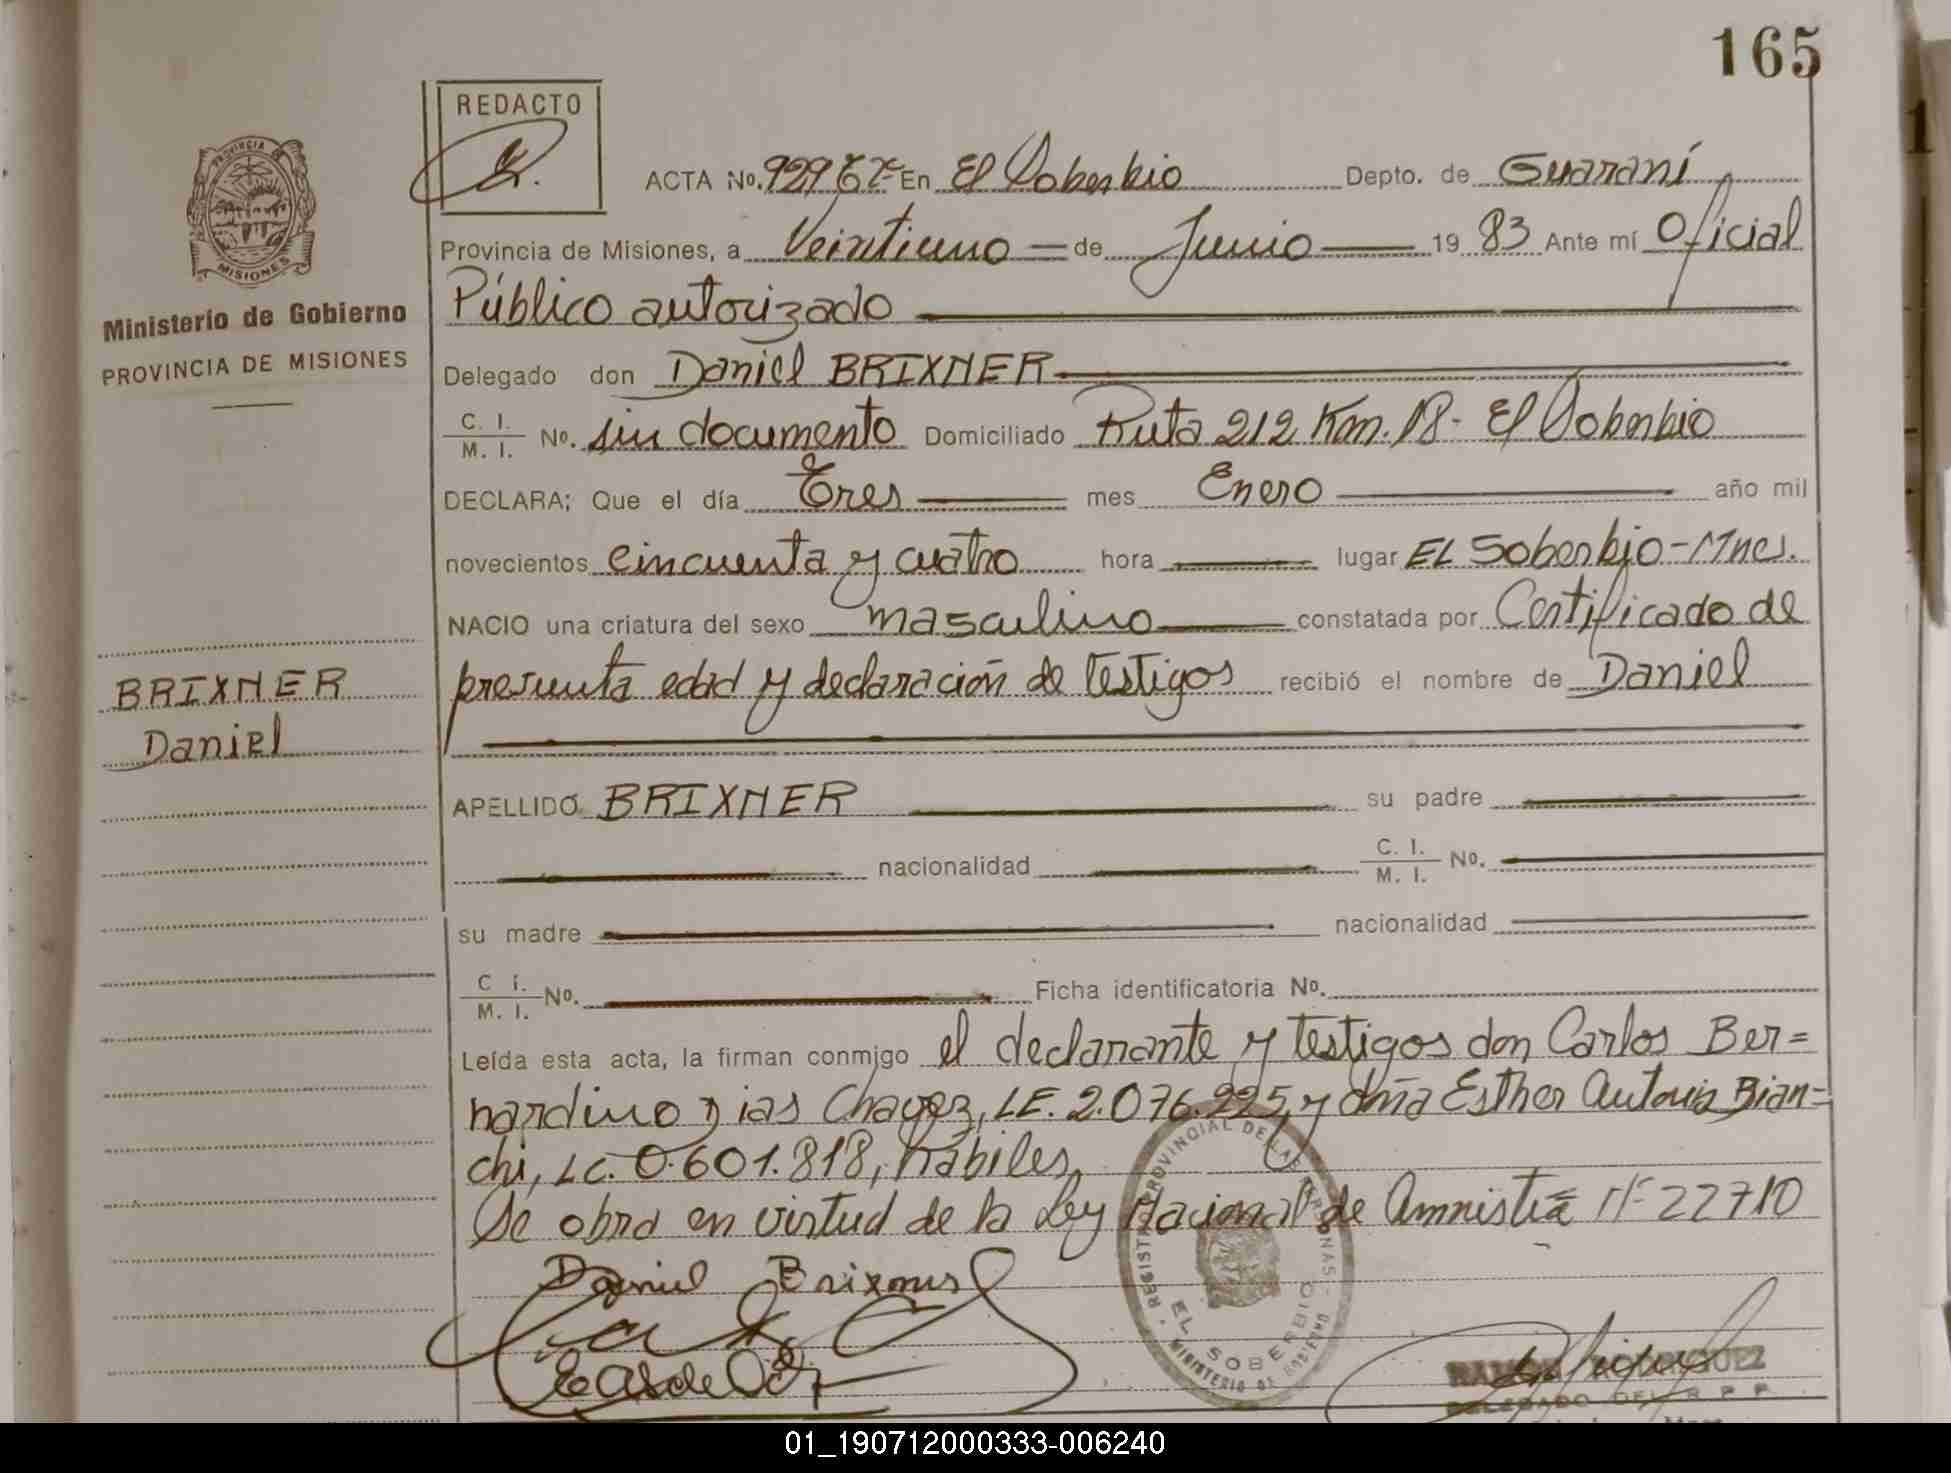 165
REDACTO
PROVINCIA
MISIONES
Ministerio de Gobierno
PROVINCIA DE MISIONES
ACTA No. 929 En El Soberbio Depto. de Guaraní
Provincia de Misiones, a Veintiuno de Junio 19 83 Ante mí Oficial
Público autorizado
Delegado don Daniel BRIXNER
C. I.
M. I. No. sin documento Domiciliado Ruta 212 Km. 18- El Soberbio
DECLARA; Que el día Tres mes Enero año mil
novecientos cincuenta y cuatro hora lugar EL Soberbio-Mnes.
NACIO una criatura del sexo masculino constatada por Certificado de
presunta edad y declaración de testigos recibió el nombre de Daniel
BRIXNER
Daniel
APELLIDO BRIXNER su padre
nacionalidad C. I.
M. I. No.
su madre nacionalidad
C I.
M. I. No. Ficha identificatoria No.
Leída esta acta, la firman conmigo el declarante y testigos don Carlos Ber=
nardino Dias Chavez, LE. 2.076.225, y dña Esther Antonia Bian=
chi, LC. 0.601.818, hábiles,
Se obra en virtud de la Ley Nacional de Amnistía Nº 22710
REGISTRO PROVINCIAL DE LAS PERSONAS
EL SOBERBIO
MINISTERIO DE GOBIERNO
Daniel Brixner
RAMON RODRIGUEZ
DELEGADO DEL R P P
01_190712000333-006240